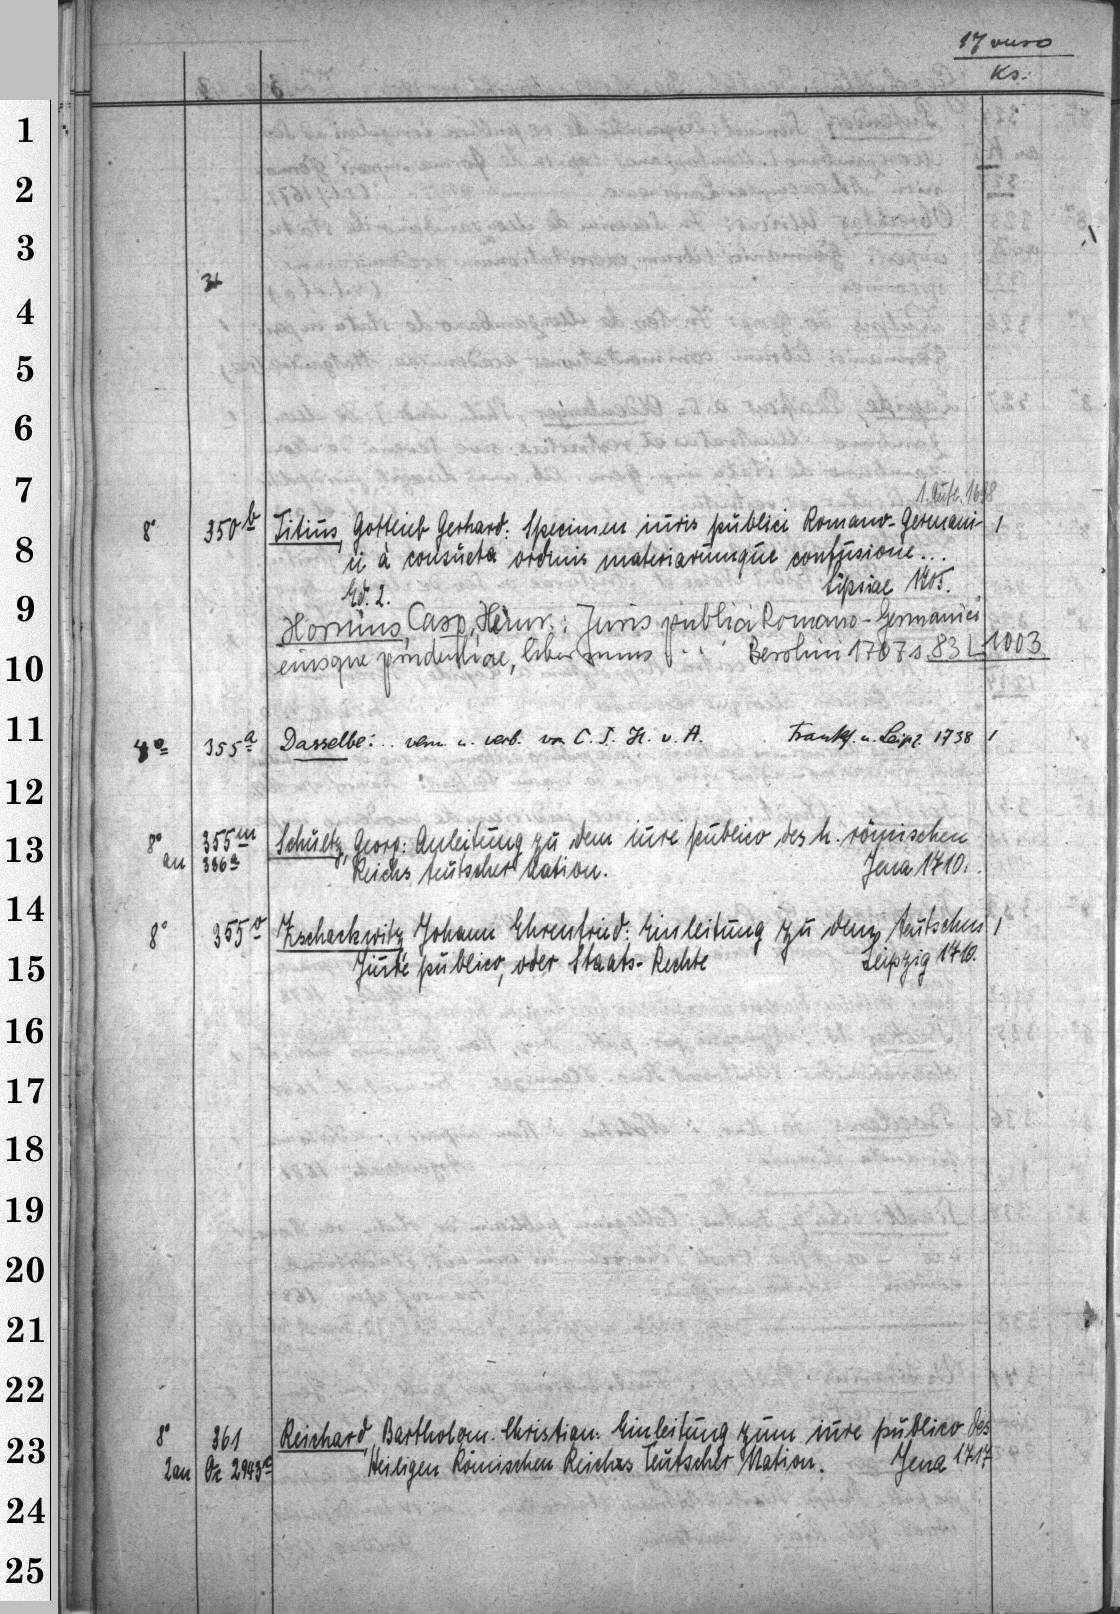 17 verso
Ks.
1
2
3
4
5
6
7
1. Aufl. 1698
8° 350 b Titius, Gottlieb Gerhard: Specimen iuris publici Romano-Germani- 1
8
ci à consueta ordinis materiarumque confusione...
Ed. 2. Lipsiae 1705.
9
Hornius, Casp. Heinr.: Juris publici Romano-Germanici
10
eiusque prudentiae, liber unus ... Berolini 1707 s. 83 L 1003
11
4° 355 a Dasselbe: .. verm. u. verb. von C. J. H. v. A. Frankf. u. Leipz. 1738 1
12
8° 355 m Schultz, Georg: Anleitung zu dem iure publico des h. römischen
13
an 386 a Reichs teutscher Nation. Jena 1710.
14
8° 355 v Zschackwitz, Johann Ehrenfried: Einleitung zu dem teutschen 1
15
Jure publico, oder Staats-Rechte Leipzig 1710.
16
17
18
19
20
21
22
8° 361 Reichard, Bartholom. Christian: Einleitung zum iure publico des
23
2 an 2943 a Heiligen Römischen Reichs Teutscher Nation. Jena 1717
24
25